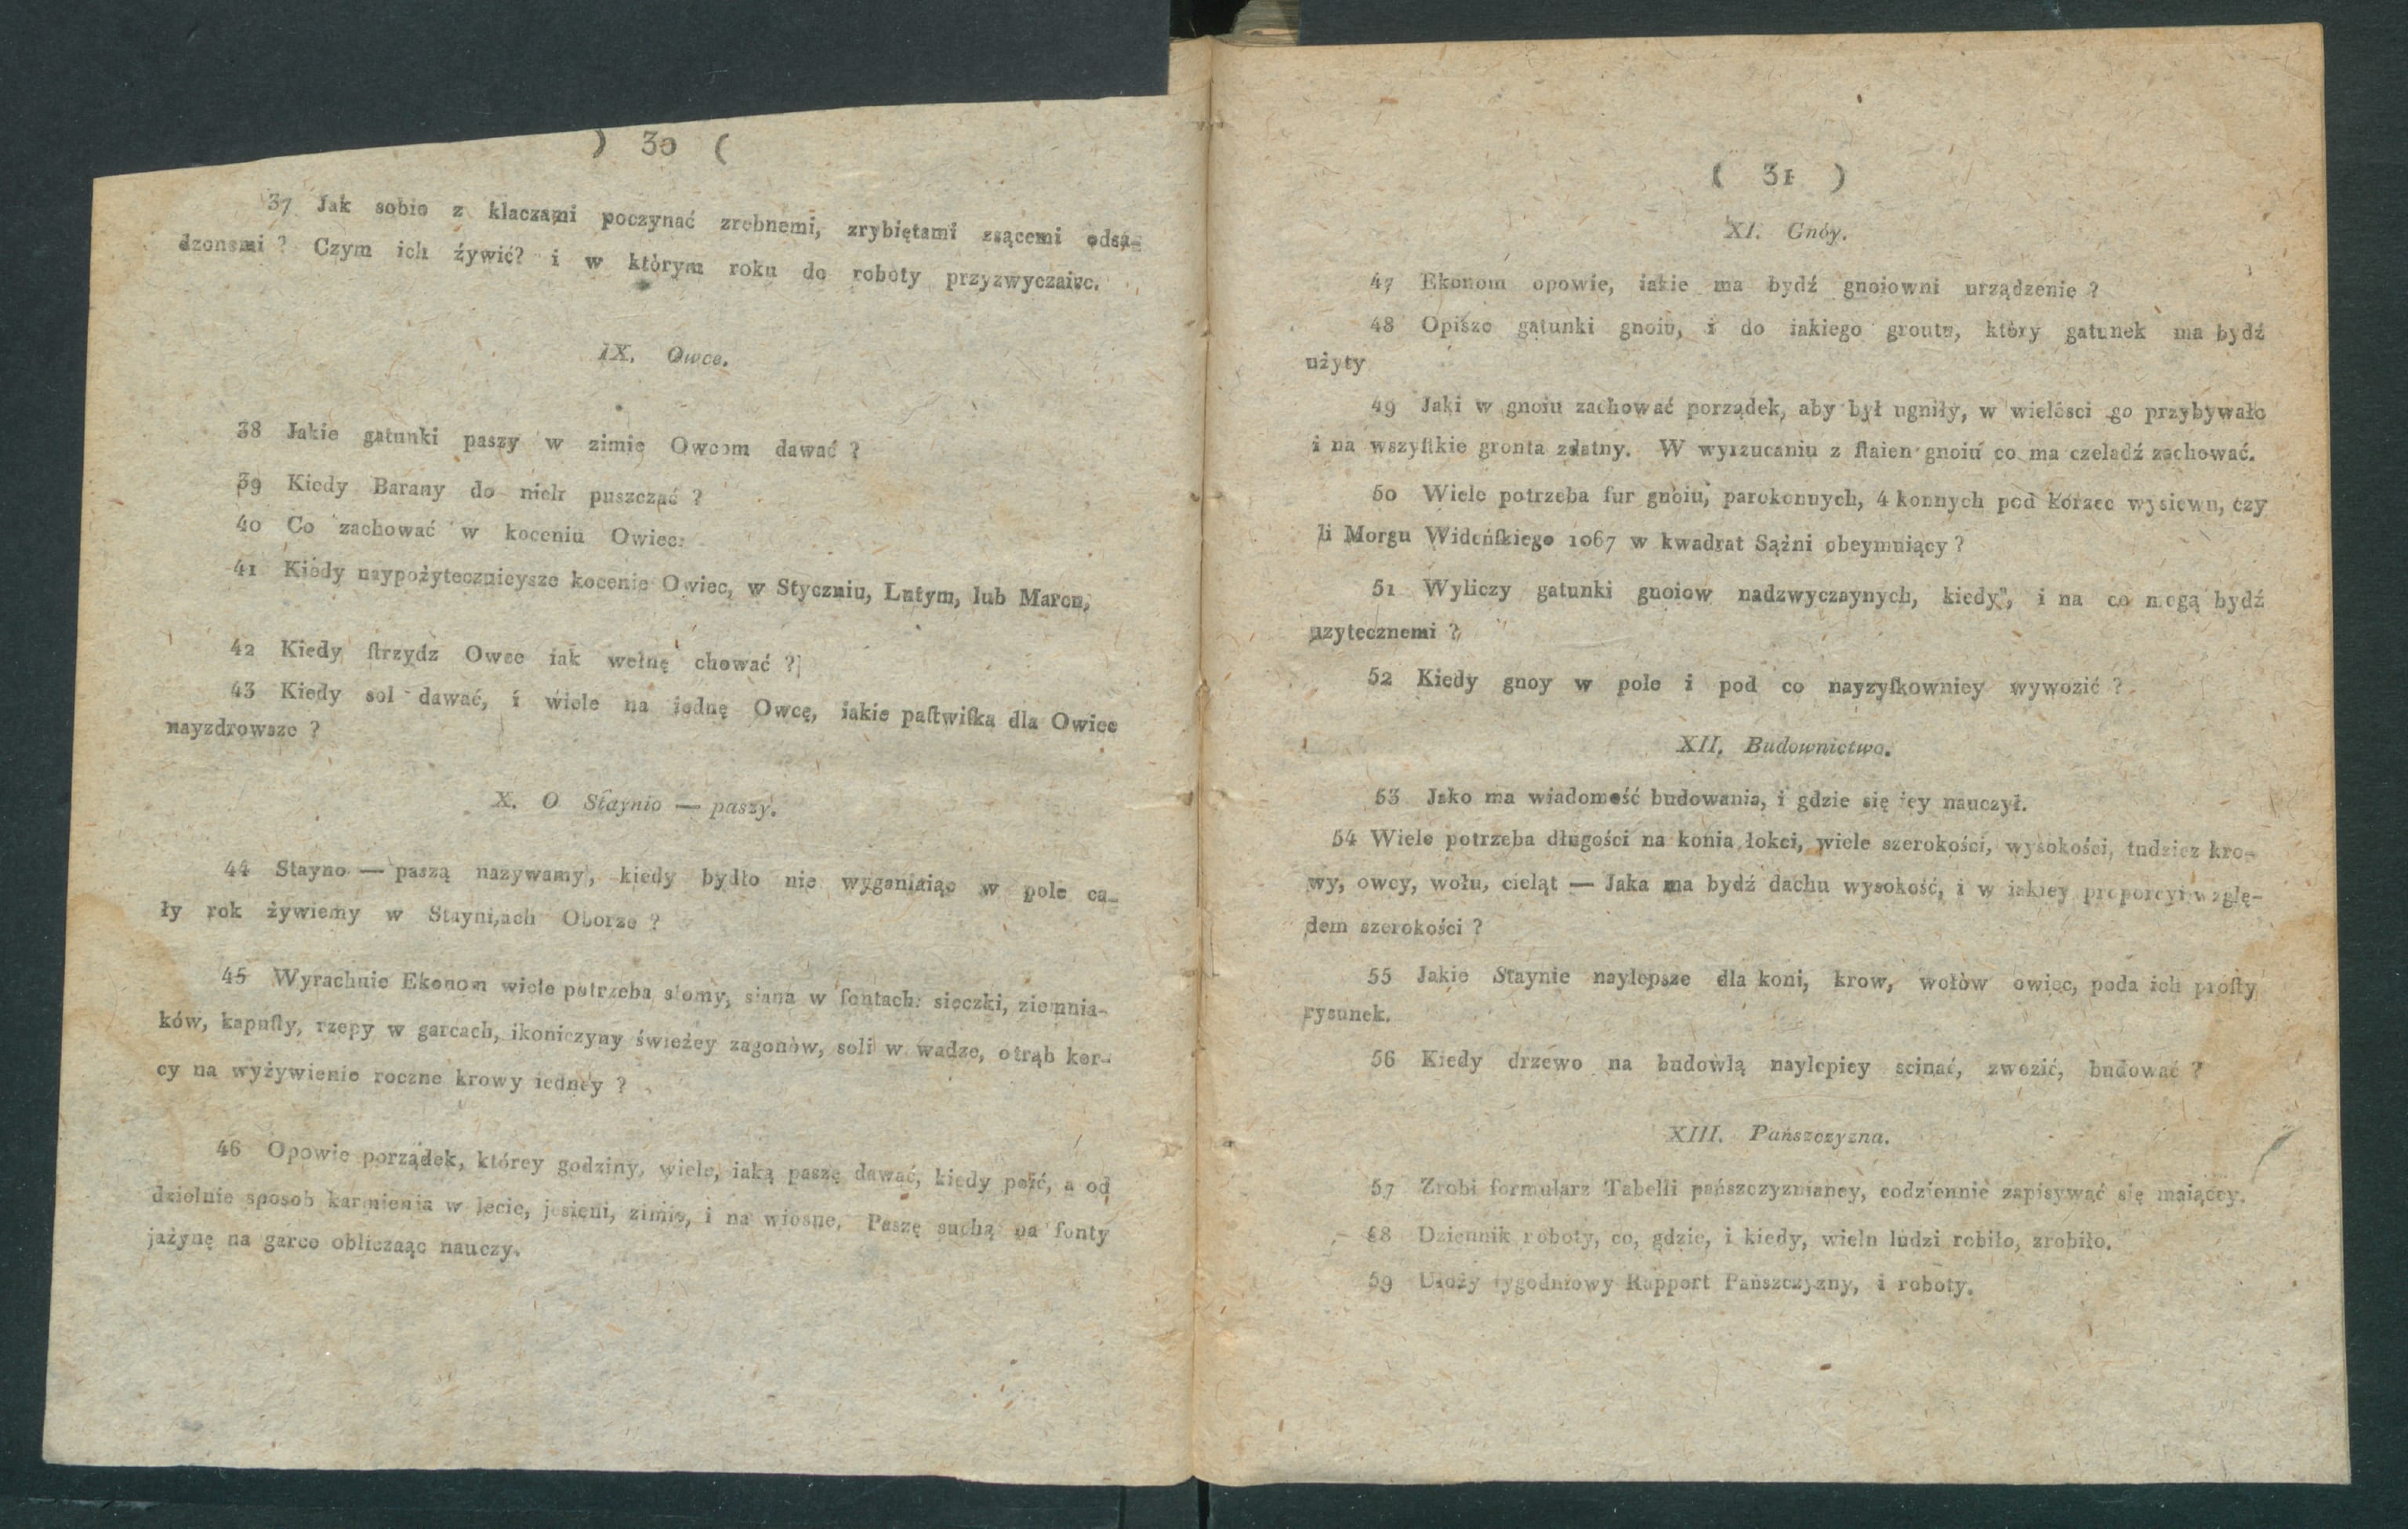 ) 30 (
37 Jak sobie z klaczami poczynać zrebnemi, zrybiętami ssącemi odsa-
dzonemi ? Czym ich źywić? i w którym roku do roboty przyzwyczaiac.
IX. Owce.
38 Jakie gatunki paszy w zimie Owcom dawać ?
39 Kiedy Barany do nich puszczać ?
40 Co zachować w koceniu Owiec:
41 Kiedy naypożytecznieysze kocenie Owiec, w Styczniu, Lutym, lub Marcu,
42 Kiedy ſtrzydz Owce iak wełnę chować ?]
43 Kiedy sol dawać, i wiele na iednę Owcę, iakie paſtwiſka dla Owiec
nayzdrowsze ?
X. O Staynio — paszy.
44 Stayno — paszą nazywamy, kiedy bydło nie wyganiaiąc w pole ca-
ły rok żywiemy w Stayni,ach Oborze ?
45 Wyrachuie Ekonom wiele potrzeba słomy, siana w fontach: sieczki, ziemnia-
ków, kapuſty, rzepy w garcach, ikoniczyny świeżey zagonòw, soli w wadze, otrąb kor-
cy na wyżywienie roczne krowy iedney ?
46 Opowie porządek, którey godziny, wiele, iaką paszę dawać, kiedy poić, a od
dzielnie sposob karmienia w lecie, jesieni, zimie, i na wiosne. Paszę suchą na fonty
jażynę na garce obliczaąc nauczy.
( 31 )
XI. Gnóy.
47 Ekonom opowie, iakie ma bydź gnoiowni urządzenie ?
48 Opisze gatunki gnoiu, i do iakiego grontu, który gatunek ma bydź
użyty
49 Jaki w gnoiu zachować porządek, aby był ugniły, w wielości go przybywało
i na wszyſtkie gronta zdatny. W wyrzucaniu z ſtaien gnoiu co ma czeladź zachować.
50 Wiele potrzeba fur gnoiu, parokonnych, 4 konnych pod korzec wysiewu, czy
li Morgu Wideńſkiego 1067 w kwadrat Sążni obeymuiący ?
51 Wyliczy gatunki gnoiow nadzwyczaynych, kiedy", i na co mogą bydź
uzytecznemi ?
52 Kiedy gnoy w pole i pod co nayzyſkowniey wywozić ?
XII. Budownictwo.
53 Jako ma wiadomość budowania, i gdzie się iey nauczył.
54 Wiele potrzeba długości na konia łokci, wiele szerokości, wysokości, tudziez kro-
wy, owcy, wołu, cieląt — Jaka ma bydź dachu wysokość, i w iakiey proporcyi wzglę-
dem szerokości ?
55 Jakie Staynie naylepsze dla koni, krow, wołòw owiec, poda ich proſty
rysunek.
56 Kiedy drzewo na budowlą naylepiey scinać, zwozić, budować ?
XIII. Pańszczyzna.
57 Zrobi formularz Tabelli pańszczyznianey, codziennie zapisywać się maiącey.
58 Dziennik roboty, co, gdzie, i kiedy, wielu ludzi robiło, zrobiło.
59 Ułoży tygodniowy Rapport Pańszczyzny, i roboty.